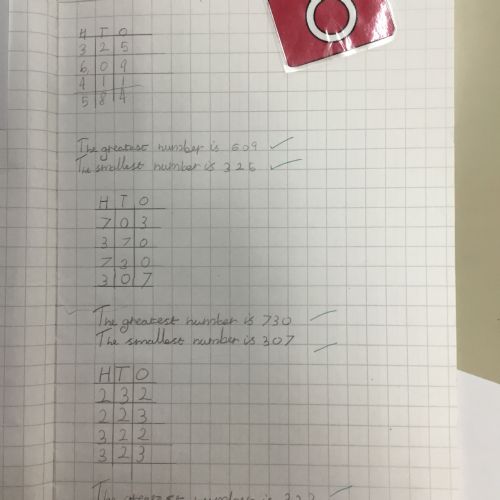 H T O
3 2 5
6 0 9
4 1 1
5 8 4
The greatest number is 609
The smallest number is 325
H T O
7 0 3
3 7 0
7 3 0
3 0 7
The greatest number is 730
The smallest number is 307
H T O
2 3 2
2 2 3
3 2 2
3 2 3
The greatest number is 323